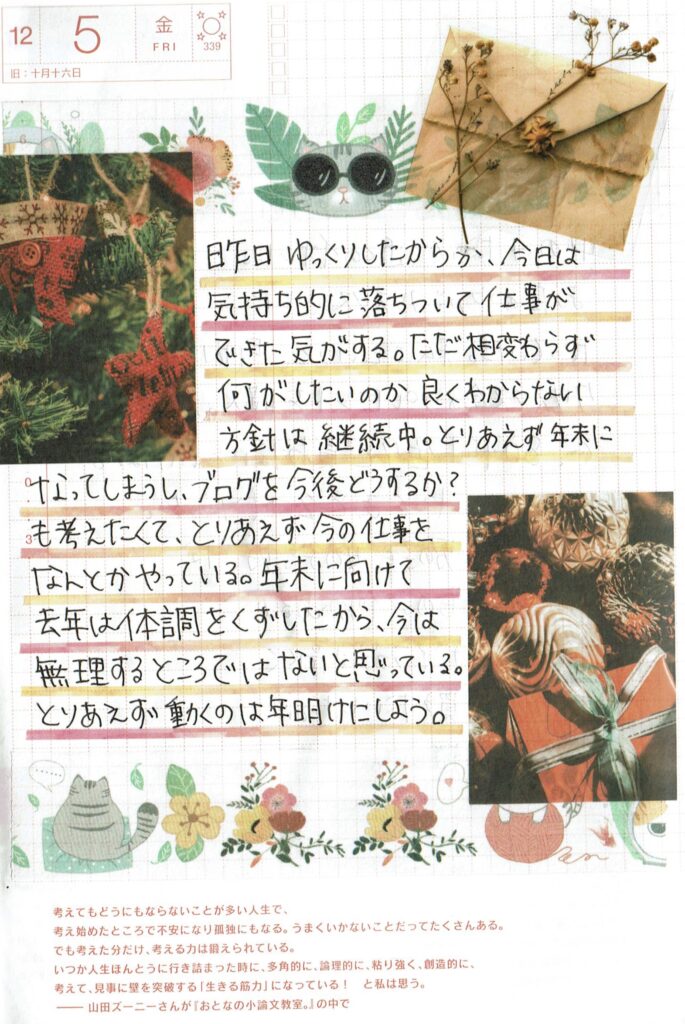 12 5 金 FRI 339
旧：十月十六日
昨日 ゆっくりしたからか、今日は
気持ち的に落ちついて仕事が
できた気がする。ただ相変わらず
何がしたいのか 良くわからない
方針は 継続中。とりあえず 年末に
なってしまうし、ブログを 今後どうするか？
も考えたくて、とりあえず 今の仕事を
なんとか やっている。年末に向けて
去年は体調をくずしたから、今は
無理するところではないと思っている。
とりあえず 動くのは年明けにしよう。
考えてもどうにもならないことが多い人生で、
考え始めたところで不安になり孤独にもなる。うまくいかないことだってたくさんある。
でも考えた分だけ、考える力は鍛えられている。
いつか人生ほんとうに行き詰まった時に、多角的に、論理的に、粘り強く、創造的に、
考えて、見事に壁を突破する「生きる筋力」になっている！　と私は思う。
―― 山田ズーニーさんが『おとなの小論文教室。』の中で